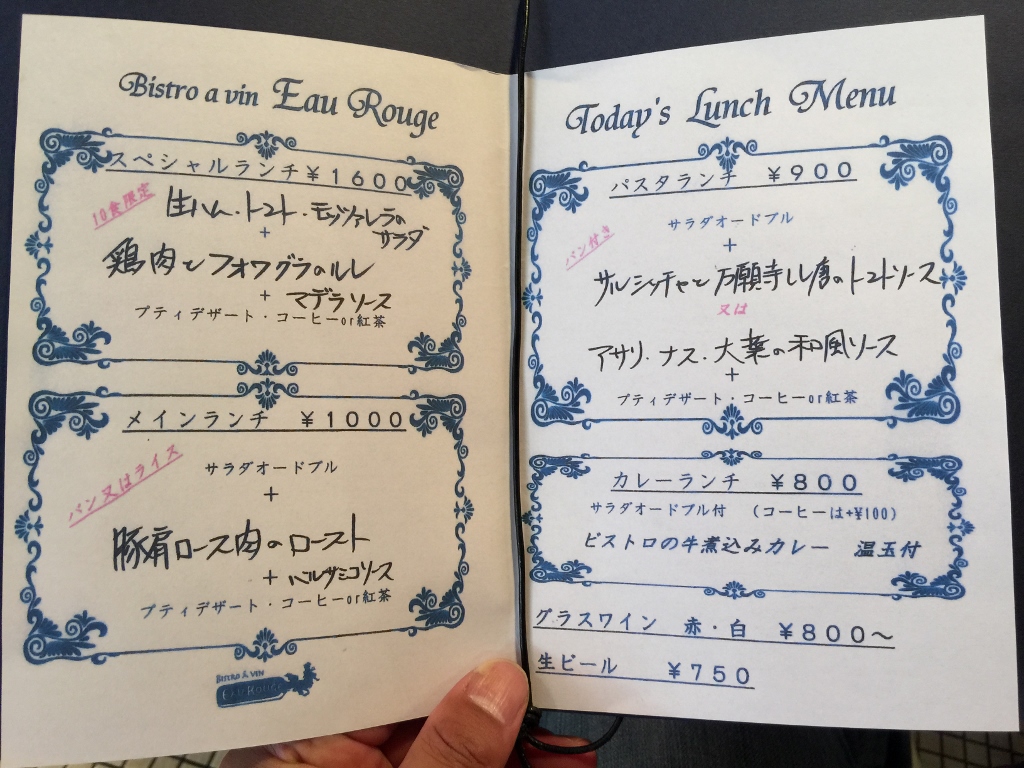 Bistro a vin Eau Rouge
スペシャルランチ ¥1600
10食限定
生ハム・トマト・モッツァレラの
サラダ
+
鶏肉とフォワグラのルレ
+
マデラソース
プティデザート・コーヒーor紅茶
メインランチ ¥1000
パン又はライス
サラダオードブル
+
豚肩ロース肉のロースト
+ バルサミコソース
プティデザート・コーヒーor紅茶
BISTRO A VIN
EAU ROUGE
Today's Lunch Menu
パスタランチ ¥900
サラダオードブル
パン付き
+
サルシッチャと万願寺しし唐のトマトソース
又は
アサリ・ナス・大葉の和風ソース
+
プティデザート・コーヒーor紅茶
カレーランチ ¥800
サラダオードブル付 (コーヒーは+¥100)
ビストロの牛煮込みカレー 温玉付
グラスワイン 赤・白 ¥800～
生ビール ¥750